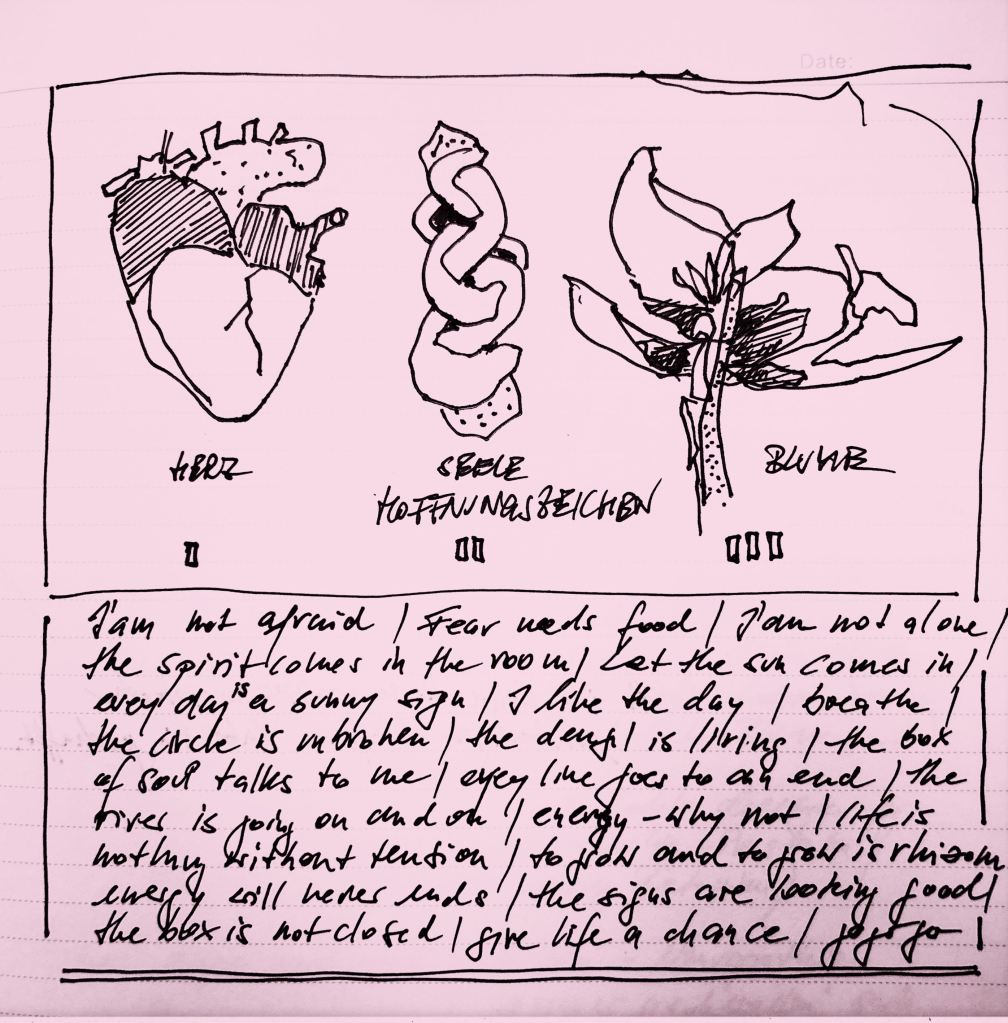 Date:
HERZ
SEELE
HOFFNUNGSZEICHEN
BLUME
I
II
III
I'am not afraid / Fear needs food / I'am not alone /
the spirit comes in the room / Let the sun comes in /
every day is a sunny sign / I like the day / breathe /
the circle is unbroken / the is living / the box
of soul talks to me / every line goes to an end / the
river is going on and on / energy - why not / life is
nothing without tension / to grow and to grow is rhizom
energy will never ends / the signs are looking good /
the box is not closed / give life a chance / go go go